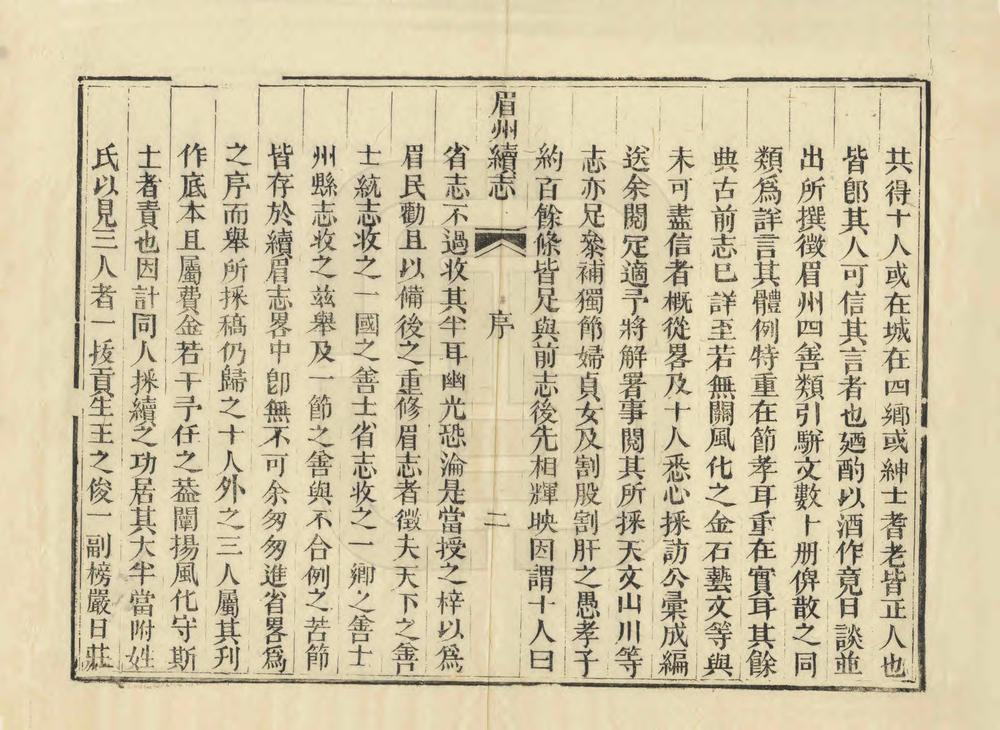 共得十人或在城在四鄉或紳士耆老皆正人也
皆卽其人可信其言者也廼酌以酒作竟日談並
出所撰徵眉州四善類引駢文數十册俾散之同
類爲詳言其體例特重在節孝耳重在實耳其餘
典古前志巳詳至若無關風化之金石藝文等與
未可盡信者槪從畧及十人悉心採訪公彙成編
送余閱定適予將解署事閱其所採天文山川等
志亦足叅補獨節婦貞女及割股割肝之愚孝子
約百餘條皆足與前志後先相輝映因謂十人曰
眉州續志
序
二
省志不過收其半耳幽光恐淪是當授之梓以爲
眉民勸且以備後之重修眉志者徵夫天下之善
士統志收之一國之善士省志收之一鄉之善士
州縣志收之兹舉及一節之善與不合例之苦節
皆存於續眉志畧中卽無不可余匆匆進省畧爲
之序而舉所採稿仍歸之十人外之三人屬其刋
作底本且屬費金若干予任之葢闡揚風化守斯
士者責也因計同人採續之功居其大半當附姓
氏以見三人者一拔貢生王之俊一副榜嚴日莊